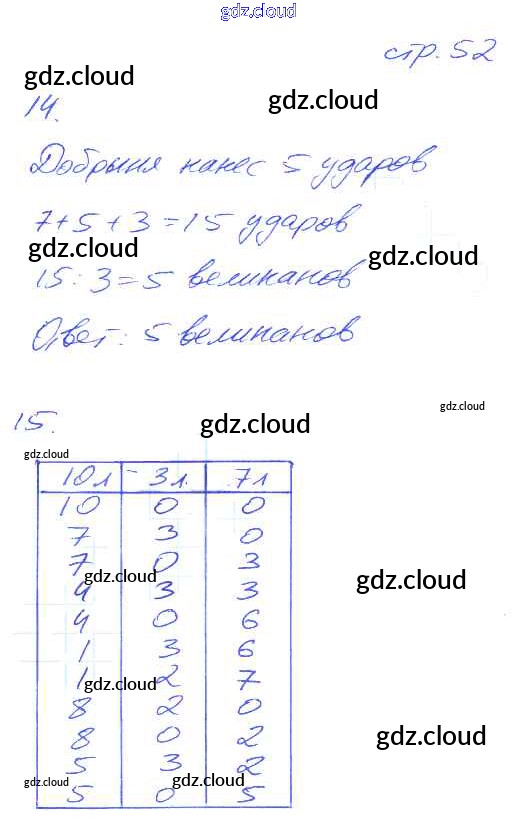 gdz.cloud
стр. 52
gdz.cloud
gdz.cloud
14.
Добрыня нанес 5 ударов
7+5+3=15 ударов
gdz.cloud
gdz.cloud
15:3=5 великанов
Ответ: 5 великанов
gdz.cloud
15.
gdz.cloud
gdz.cloud
10л 3л. 7л
10 0 0
7 3 0
7 0 3
gdz.cloud
gdz.cloud
4 3 3
4 0 6
1 3 6
1 2 7
gdz.cloud
8 2 0
8 0 2
gdz.cloud
5 3 2
gdz.cloud
gdz.cloud
5 0 5